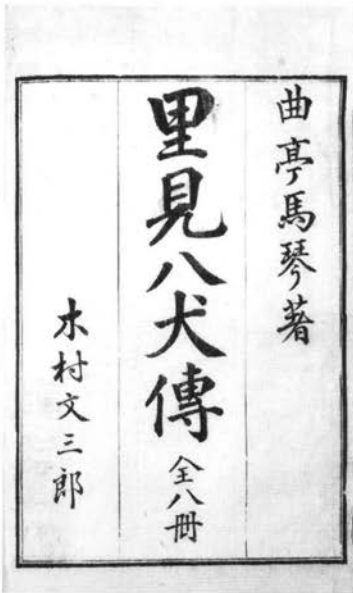 曲亭馬琴著
里見八犬傳 全八冊
木村文三郎